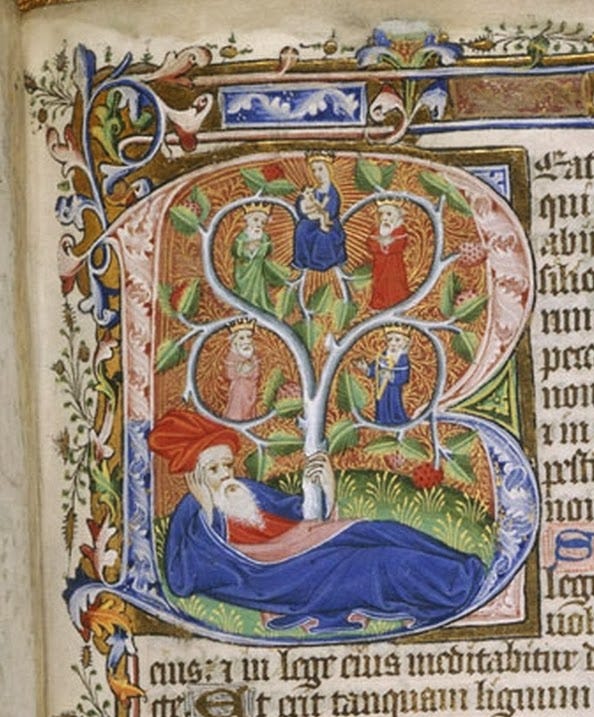 BEat
qui
abii
silio
rum
pecc
non
⁊ in
pesti
non
S
lege
uolu
eius: ⁊ in lege eius meditabitur d
cte. Et erit tanquam lignum